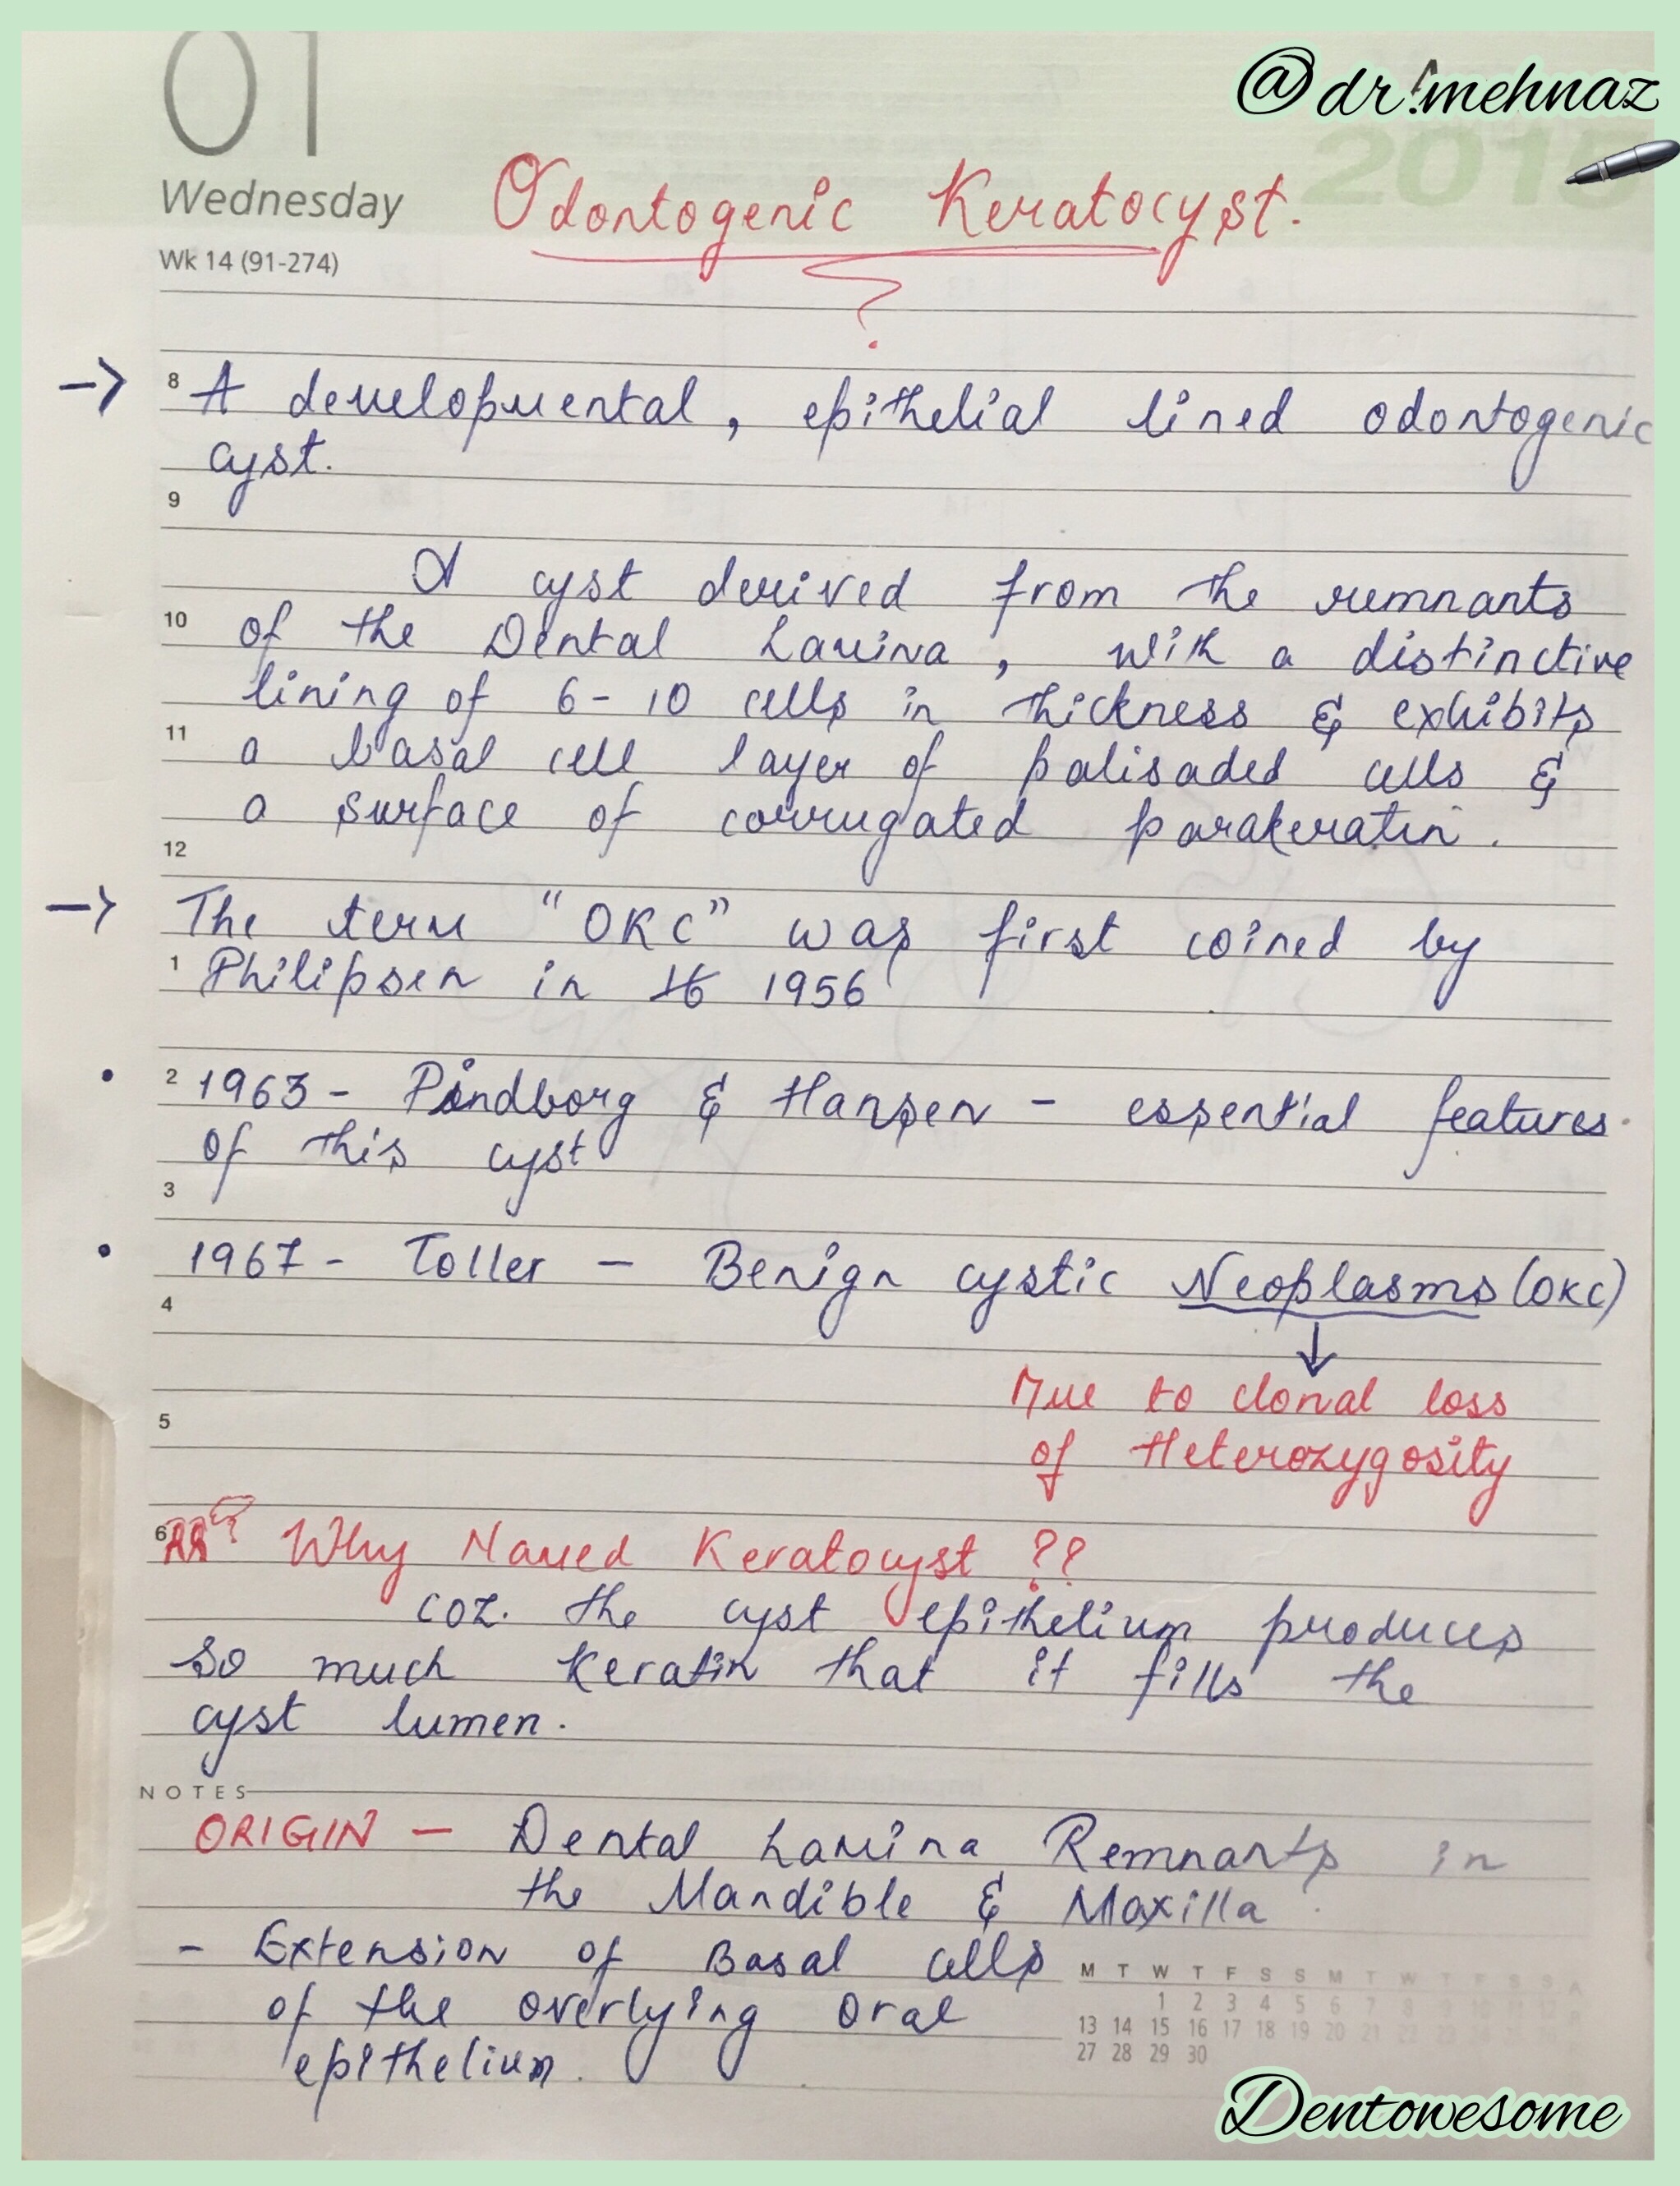 01
@dr.mehnaz
2015
Wednesday
Odontogenic Keratocyst.
Wk 14 (91-274)
?
→ 8 A developmental, epithelial lined odontogenic
cyst.
9
A cyst derived from the remnants
10 of the Dental Lamina, with a distinctive
lining of 6-10 cells in thickness & exhibits
11 a basal cell layer of palisaded cells &
a surface of corrugated parakeratin.
12
→ The term "OKC" was first coined by
1 Philipsen in 1956
• 2 1963 - Pindborg & Hansen - essential features
of this cyst
3
• 1967 - Toller - Benign cystic Neoplasms (OKC)
4
↓
Due to clonal loss
5
of Heterozygosity
6 Why Named Keratocyst ??
coz. the cyst epithelium produces
so much Keratin that it fills the
cyst lumen.
NOTES
ORIGIN - Dental Lamina Remnants in
the Mandible & Maxilla.
- Extension of Basal cells
of the overlying oral
epithelium.
M T W T F S S M T W T F S S
1 2 3 4 5 6 7 8 9 10 11 12
13 14 15 16 17 18 19 20 21 22 23
27 28 29 30
Dentowesome